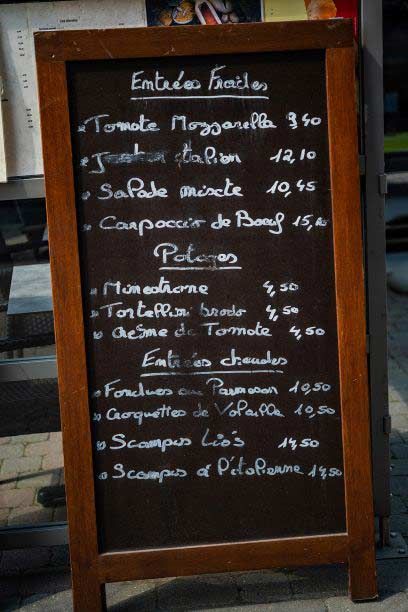 Entrées Froides
Tomate Mozzarella 9,40
italien 12,10
Salade mixte 10,45
Carpaccio de Boeuf
Potages
Minestrone 4,50
Tortellini brodo 4,50
Crème de Tomate 4,50
Entrées chaudes
Fondues au Parmesan 10,50
Croquettes de Volaille 10,50
Scampis 14,50
Scampis à l'italienne 14,50